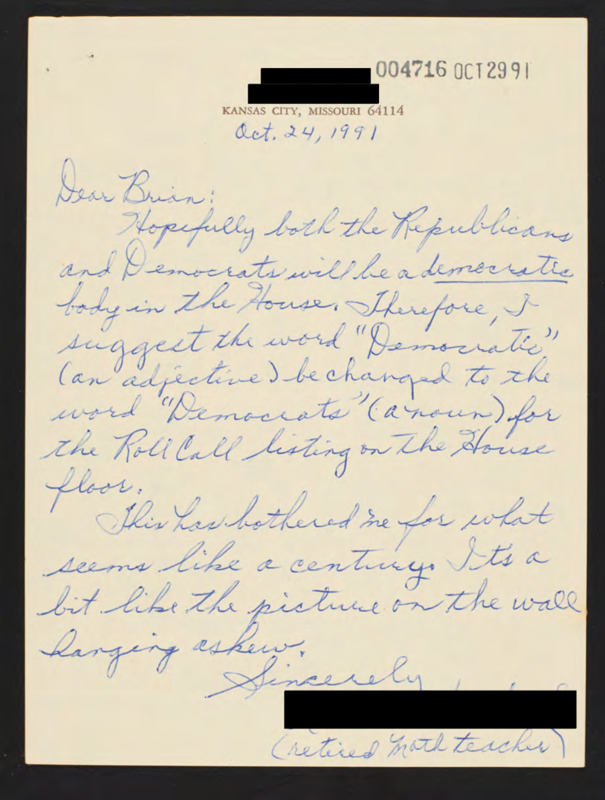 004716 OCT 29 91
KANSAS CITY, MISSOURI 64114
Oct. 24, 1991
Dear Brian:
Hopefully both the Republicans
and Democrats will be a democratic
body in the House. Therefore, I
suggest the word "Democratic"
(an adjective) be changed to the
word "Democrats" (a noun) for
the Roll Call listing on the House
floor.
This has bothered me for what
seems like a century. It's a
bit like the picture on the wall
hanging askew.
Sincerely
(retired math teacher)